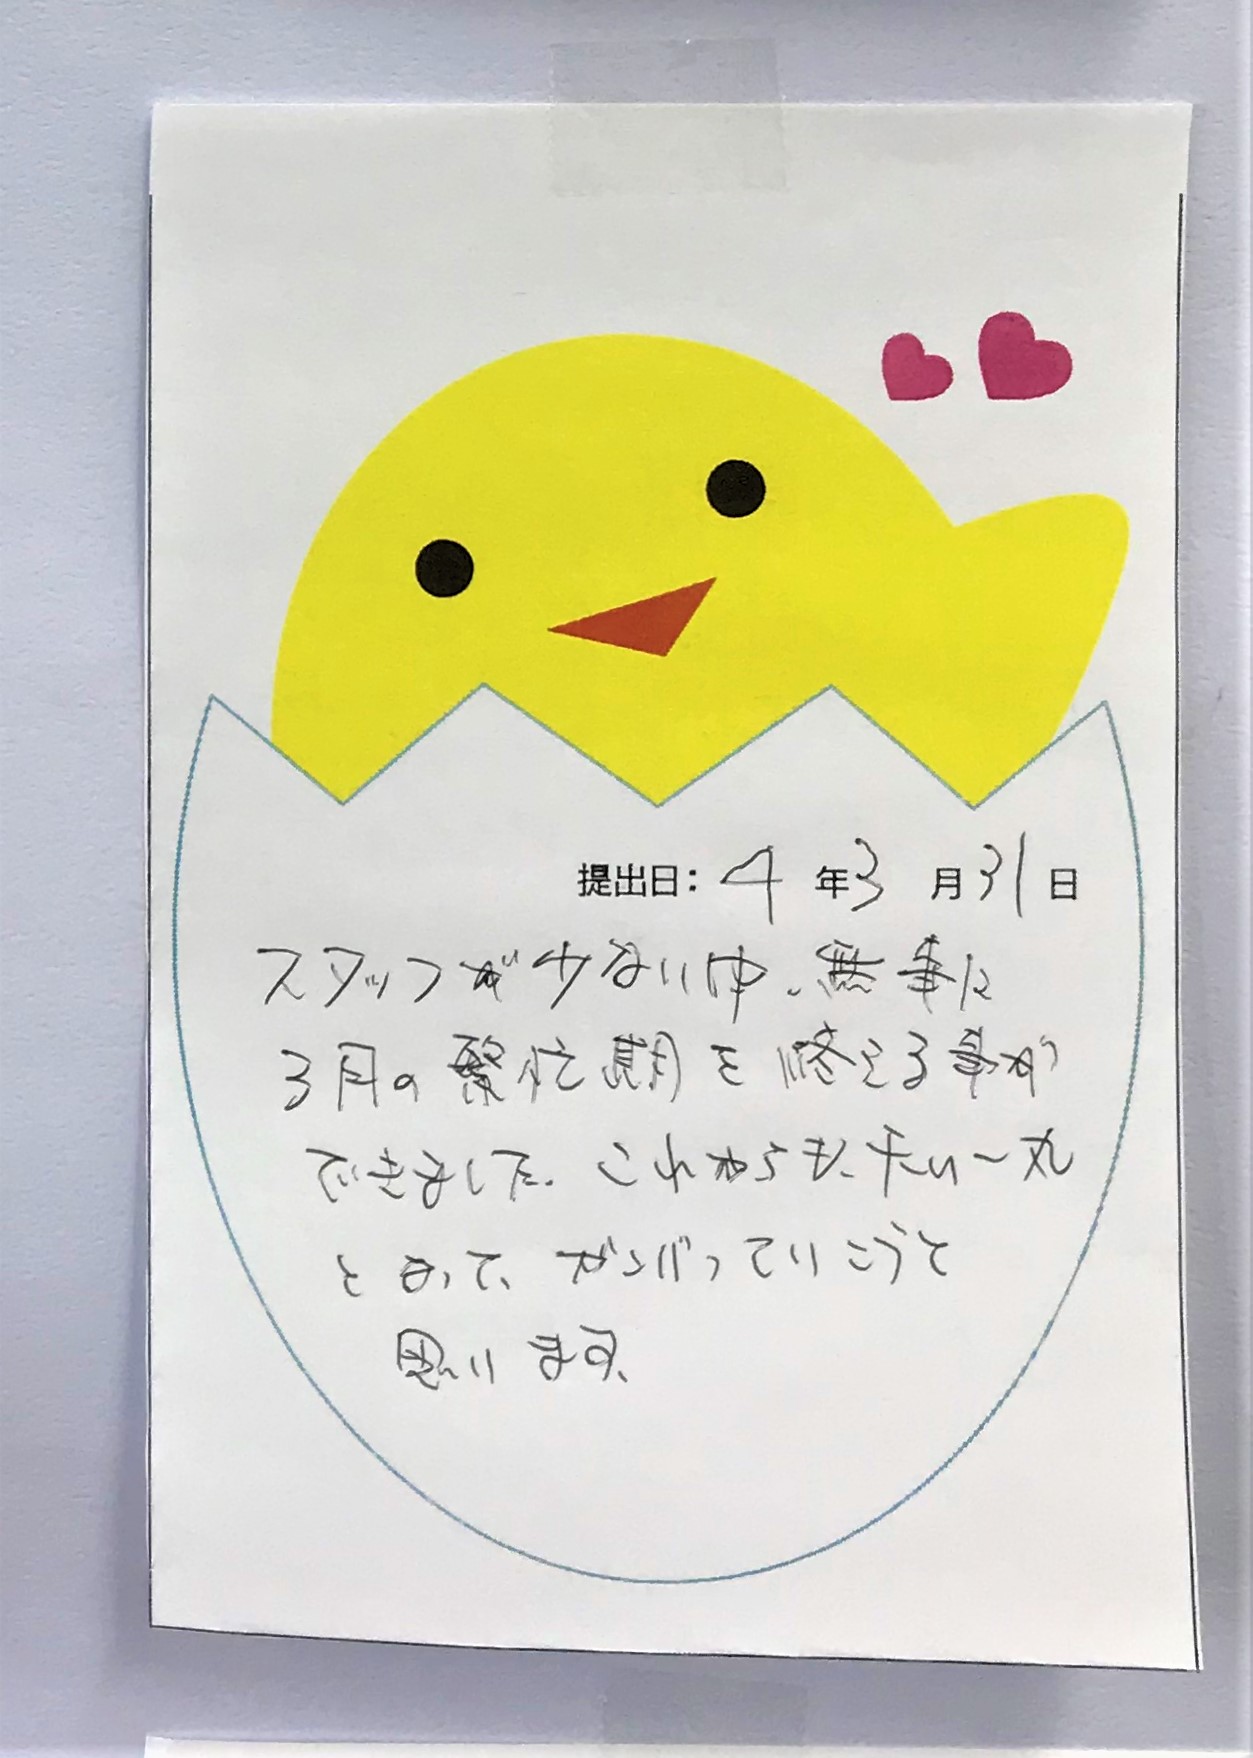 提出日: 4 年 3 月 31 日
スタッフが少ない中、無事に
3月の繁忙期を終える事が
できました。これからも、チーム一丸
となって、ガンバっていこうと
思います。